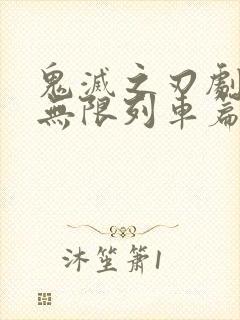 鬼滅之刃劇
無限列車篇
沐笙簫1